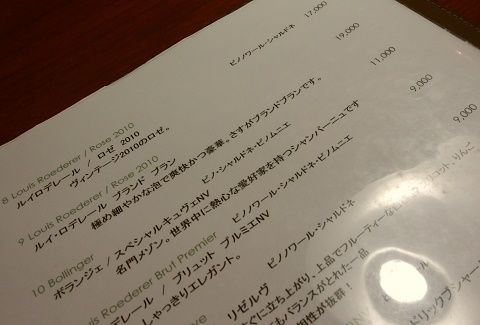 17,000
8 Louis Roederer / Rose 2010
ルイロデレール / ロゼ 2010
ピノノワール・シャルドネ
19,000
ヴィンテージ2010のロゼ。
9 Louis Roederer / Rose 2010
ルイ・ロデレール ブランド ブラン
11,000
極め細やかな泡で爽快かつ豪華。さすがブランドブランです。
10 Bollinger
ボランジェ / スペシャルキュヴェNV
ピノ・シャルドネ・ピノムニエ
9,000
名門メゾン。世界中に熱心な愛好家を持つシャンパーニュです
Louis Roederer Brut Premier
デレール / ブリュット プルミエNV
ピノノワール・シャルドネ・ピノムニエ
9,000
しゃっきりエレガント。
リゼルヴ
ピノノワール・シャルドネ
すぐに立ち上がり、上品でフルーティーな
もバランスがとれた一品
相性が抜群!